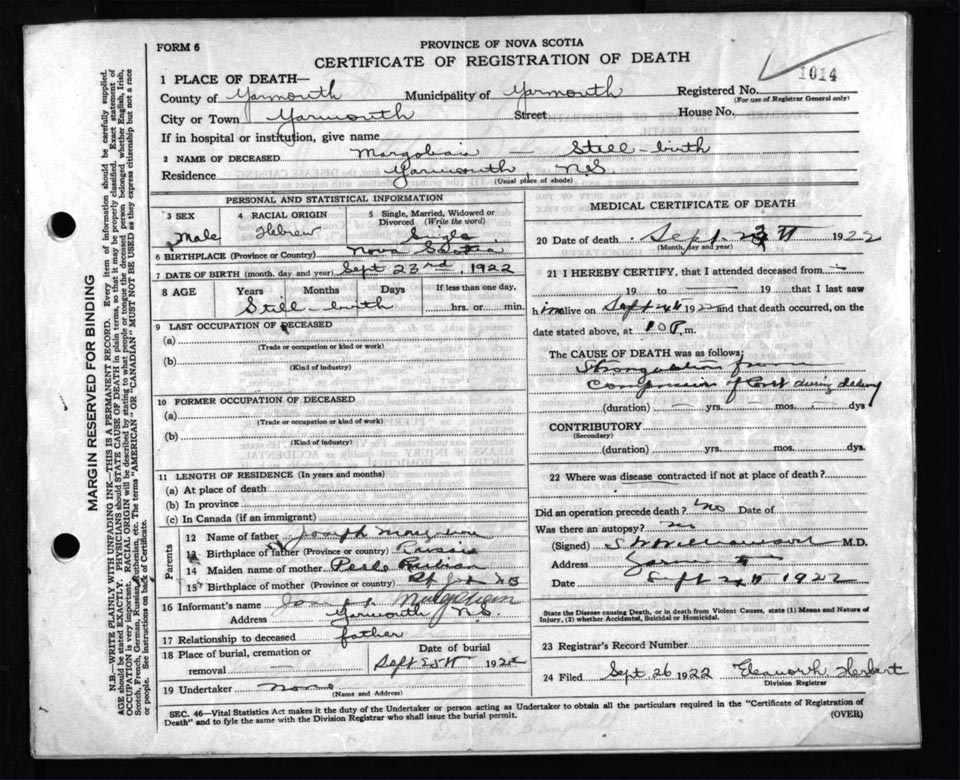 FORM 6
PROVINCE OF NOVA SCOTIA
CERTIFICATE OF REGISTRATION OF DEATH
1014
1 PLACE OF DEATH—
County of Yarmouth Municipality of Yarmouth Registered No.
(For use of Registrar General only)
City or Town Yarmouth Street House No.
If in hospital or institution, give name
2 NAME OF DECEASED Still-birth
Residence Yarmouth, N.S.
(Usual place of abode)
PERSONAL AND STATISTICAL INFORMATION
3 SEX 4 RACIAL ORIGIN 5 Single, Married, Widowed or Divorced (Write the word)
Male Hebrew Single
6 BIRTHPLACE (Province or Country) Nova Scotia
7 DATE OF BIRTH (month, day and year) Sept 23rd, 1922
8 AGE Years Months Days If less than one day,
Still-birth hrs. or min.
9 LAST OCCUPATION OF DECEASED
(a)
(Trade or occupation or kind or work)
(b)
(Kind of industry)
10 FORMER OCCUPATION OF DECEASED
(a)
(Trade or occupation or kind or work)
(b)
(Kind of industry)
11 LENGTH OF RESIDENCE (In years and months)
(a) At place of death
(b) In province
(c) In Canada (if an immigrant)
Parents
12 Name of father Joseph
13 Birthplace of father (Province or country) Russia
14 Maiden name of mother
15 Birthplace of mother (Province or country)
16 Informant's name
Address Yarmouth N.S.
17 Relationship to deceased father
18 Place of burial, cremation or removal Date of burial
Sept 25th 1922
19 Undertaker none
(Name and Address)
MEDICAL CERTIFICATE OF DEATH
20 Date of death Sept. 1922
(Month, day and year)
21 I HEREBY CERTIFY, that I attended deceased from
19 to 19 that I last saw
h alive on Sept and that death occurred, on the
date stated above, at m.
The CAUSE OF DEATH was as follows:
Strangulation from
Compression of Cord during delivery
(duration) yrs. mos. dys
CONTRIBUTORY
(Secondary)
(duration) yrs. mos. dys.
22 Where was disease contracted if not at place of death?
Did an operation precede death? No Date of
Was there an autopsy? no
(Signed) M.D.
Address Yarmouth
Date Sept 1922
State the Disease causing Death, or in death from Violent Causes, state (1) Means and Nature of Injury, (2) whether Accidental, Suicidal or Homicidal.
23 Registrar's Record Number
24 Filed Sept. 26 1922 Herbert
Division Registrar
SEC. 46—Vital Statistics Act makes it the duty of the Undertaker or person acting as Undertaker to obtain all the particulars required in the "Certificate of Registration of
Death" and to fyle the same with the Division Registrar who shall issue the burial permit. (OVER)
MARGIN RESERVED FOR BINDING
N.B.—WRITE PLAINLY WITH UNFADING INK—THIS IS A PERMANENT RECORD. Every item of information should be carefully supplied.
AGE should be stated EXACTLY. PHYSICIANS should STATE CAUSE OF DEATH in plain terms, so that it may be properly classified. Exact statement of
OCCUPATION is very important. RACIAL ORIGIN will be described by stating to what people or tongue the deceased person belonged whether English, Irish,
Scotch, French, German, Russian, Ruthenian, etc. The terms "AMERICAN" OR "CANADIAN" MUST NOT BE USED as they express citizenship but not a race
or people. See instructions on back of Certificate.